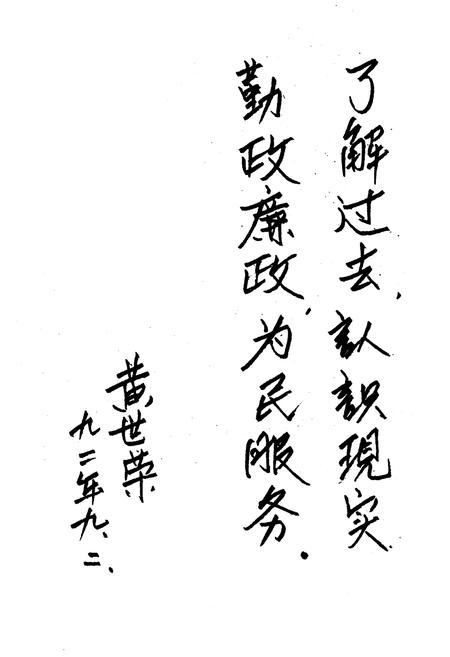 了解过去，认识現实
勤政廉政，为民服务．
黄世荣
九二年九、二、